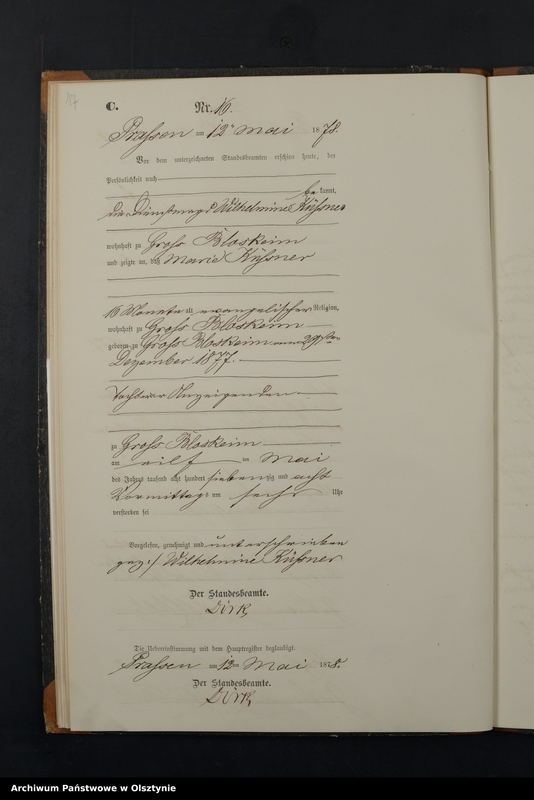 17
C.
Nr. 16.
Praßen am 12ten Mai 1878.
Vor dem unterzeichneten Standesbeamten erschien heute, der
Persönlichkeit nach
be kannt,
die Dienstmagd Wilhelmine Küßner
wohnhaft zu Gross Bloskeim
und zeigte an, daß Marie Küßner
Monate alt evangelischer Religion,
wohnhaft zu Gross Bloskeim
geboren zu Gross Bloskeim am 29sten
Dezember 1877.
Tochter der Anzeigenden
zu Gross Bloskeim
am eilf ten Mai
des Jahres tausend acht hundert siebenzig und acht
Vormittags um sechs Uhr
verstorben sei
Vorgelesen, genehmigt und unterschrieben
gez:/ Wilhelmine Küßner
Der Standesbeamte.
Dirk
Die Uebereinstimmung mit dem Hauptregister beglaubigt.
Praßen am 12ten Mai 1878.
Der Standesbeamte.
Dirk
Archiwum Państwowe w Olsztynie